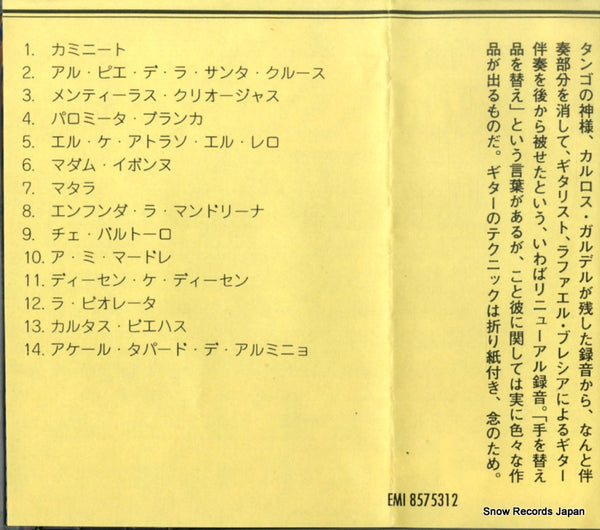 1. カミニート
2. アル・ピエ・デ・ラ・サンタ・クルース
3. メンティーラス・クリオージャス
4. パロミータ・ブランカ
5. エル・ケ・アトラソ・エル・レロ
6. マダム・イボンヌ
7. マタラ
8. エンフンダ・ラ・マンドリーナ
9. チェ・バルトーロ
10. ア・ミ・マードレ
11. ディーセン・ケ・ディーセン
12. ラ・ビオレータ
13. カルタス・ビエハス
14. アケール・タパード・デ・アルミニョ
タンゴの神様、カルロス・ガルデルが残した録音から、なんと伴
奏部分を消して、ギタリスト、ラファエル・ブレシアによるギター
伴奏を後から被せたという、いわばリニューアル録音。「手を替え
品を替え」という言葉があるが、こと彼に関しては実に色々な作
品が出るものだ。ギターのテクニックは折り紙付き、念のため。
EMI 8575312
Snow Records Japan